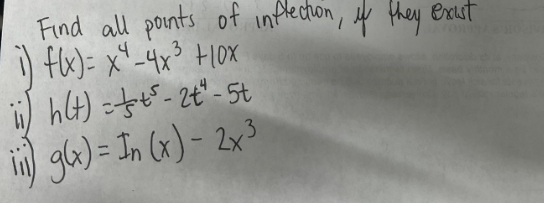 Find all points of inflection, if they exist
i) f(x) = x⁴ - 4x³ + 10x
ii) h(t) = 1/5 t⁵ - 2t⁴ - 5t
iii) g(x) = In (x) - 2x³